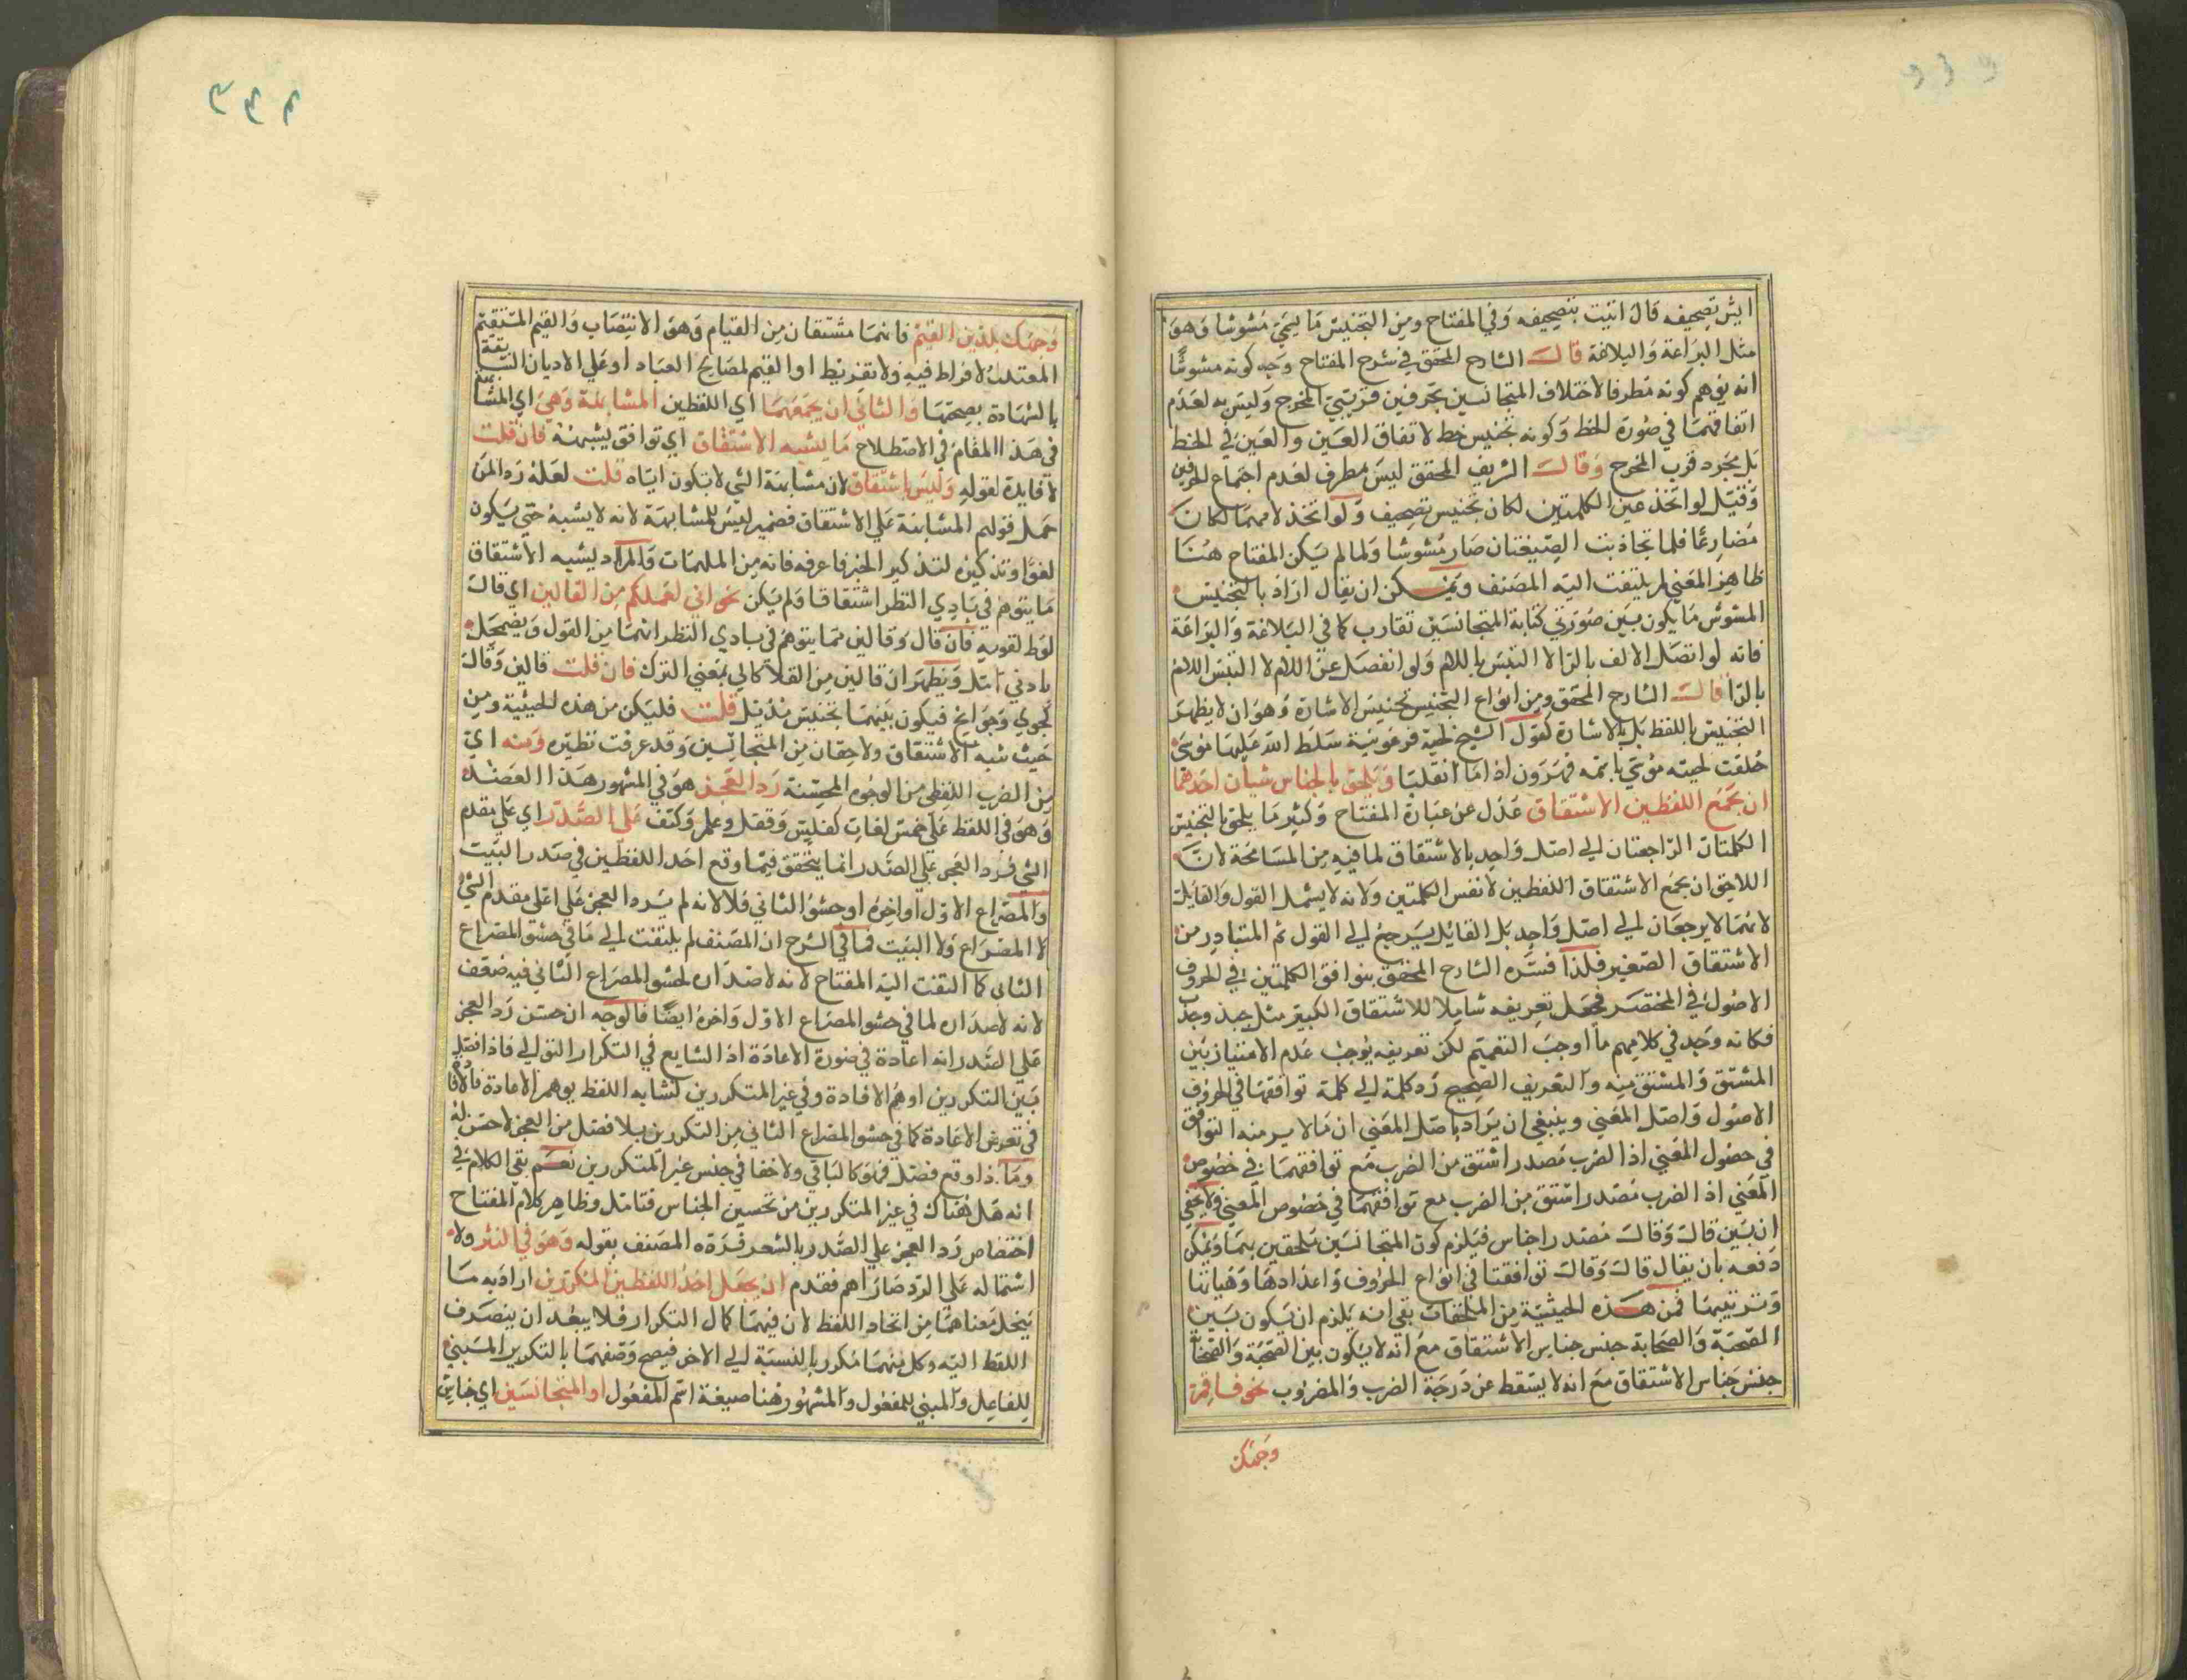 ايش تصحيفه قال اتيت بتصحيفه وفي المفتاح ومن التجنيس ما يسمي مشوشا وهو
مثل البراعة والبلاغة قالـــ الشارح المحقق في شرح المفتاح وجه كونه مشوشًا
انه يوهم كونه مطرفا لاختلاف المتجانسين بحرفين قريبي المخرج وليس به لعدم
اتفاقهما في صورة الخط وكونه تجنيس خط لاتفاق العين والغين في الخط
بل بمجرد قرب المخرج وقالـــ الشريف المحقق ليس مطرف لعدم اجتماع الحرفين
وقيل لو اتخذ عين الكلمتين لكان تجنيس تصحيف ولو اتخذ لامهما لكان
مضارعًا فلما تجاذبت الصيغتان صار مشوشا ولما لم يكن المفتاح هنا
ظاهر المعني لم يلتفت اليه المصنف ويمكن ان يقال اراد بالتجنيس
المشوش ما يكون بين صورتي كتابة المتجانسين تقارب كما في البلاغة والبراعة
فانه لو اتصل الالف بالرا لا التبس باللام ولو انفصل عن اللام لا التبس اللام
بالرا قالـــ الشارح المحقق ومن انواع التجنيس تجنيس الاشارة وهو ان لا يظهر
التجنيس باللفظ بل بالاشارة كقول الشيخ لحية فرعونية سلط الله عليها موسي
حلقت لحيته موسي باسمه فهرون اذا ما انقلبا ويلحق بالجناس شيان احدهما
ان يجمع اللفظين الاشتقاق عدل عن عبارة المفتاح وكثير ما يلحق بالتجنيس
الكلمتان الراجعتان الي اصل واحد بالاشتقاق لما فيه من المسامحة لان
اللاحق ان يجمع الاشتقاق اللفظين لا نفس الكلمتين ولانه لا يشمل القول والقايل
لانهما لا يرجعان الي اصل واحد بل القائل يرجع الي القول ثم المتبادر من
الاشتقاق الصغير فلذا فسره الشارح المحقق بتوافق الكلمتين في الحروف
الاصول في المختصر فجعل تعريفه شاملا للاشتقاق الكبير مثل جبذ وجذب
فكانه وجد في كلامهم ما اوجب التعميم لكن تعريفه يوجب عدم الامتياز بين
المشتق والمشتق منه والتعريف الصحيح رد كلمة الي كلمة توافقها في الحروف
الاصول واصل المعني وينبغي ان يراد باصل المعني ان ما لا بد منه التوافق
في حصول المعني اذ الضرب مصدر اشتق من الضرب مع توافقهما في خصوص
المعني اذ الضرب مصدر اشتق من الضرب مع توافقهما في خصوص المعني ولا يخفي
ان بين قال وقال مصدرا جناس فيلزم كون المتجانسين ملحقين بهما ويمكن
دفعه بان يقال قال وقال توافقتا في انواع الحروف واعدادها وهيأتها
وترتيبها فمن هذه الحيثية من الملحقات بقي انه يلزم ان يكون بين
الصحبة والصحابة جنس جناس الاشتقاق مع انه لا يكون بين الصحبة والصحابة
جنس جناس الاشتقاق مع انه لا يسقط عن درجة الضرب والمضروب نحو فاقم
وجهك
وجهك للدين القيم فانهما مشتقان من القيام وهو الانتصاب والقيم المستقيم
المعتدل لا افراط فيه ولا تفريط او القيم لمصالح العباد او علي الاديان السابقة
بالشهادة بصحتها والثاني ان يجمعهما اي اللفظين المشابهة وهي اي المشابهة
في هذا المقام في الاصطلاح ما يشبه الاشتقاق اي توافق يشبهه فان قلت
لا فايدة لقوله وليس باشتقاق لان مشابهة الشي لا تكون اياه قلت لعله رد المن
حمل قولهم المشابهة علي الاشتقاق فضمير ليس للمشابهة لانه لا يشبه حتي يكون
لغوًا وتذكيره لتذكير الخبر فاعرفه فانه من الملهمات والمراد ليشبه الاشتقاق
ما يتوهم في بادي النظر اشتقاقا ولم يكن نحو اني لعملكم من القالين اي قال
لوط لقومه فان قال وقالين مما يتوهم في بادي النظر انهما من القول ويضمحل
بادني تامل ويظهر ان قالين من القلا كالي بمعني الترك فان قلت قالين وقال
كجوي وجوانح فيكون بينهما تجنيس مذيل قلت فليكن من هذه الحيثية ومن
حيث شبه الاشتقاق ولاحقان من المتجانسين وقد عرفت نظيره ومنه اي
من الضرب اللفظي من الوجوه المحسنة رد العجز هو في المشهور هذا العضد
وهو في اللفظ علي خمس لغات كفليس وقفل وعلم وكتف علي الصدر اي علي مقدم
الشي فرد العجز علي الصدر انما يتحقق فيما وقع احد اللفظين في صدر البيت
والمصراع الاول او اخره او حشو الثاني فلا لانه لم يرد العجز علي اعلي مقدم الشي
لا المصراع ولا البيت فما في الشرح ان المصنف لم يلتفت الي ما في حشو المصراع
الثاني كما التفت اليه المفتاح لانه لا صدارة لحشو المصراع الثاني فيه ضعف
لانه لا صدارة لما في حشو المصراع الاول واخره ايضًا فالوجه ان حسن رد العجز
علي الصدر انه اعادة في صورة الاعادة اذ الشايع في التكرار التوالي فاذا فصل
بين التكررين اوهم الافادة وفي غير المتكررين لتشابه اللفظ يوهم الاعادة فالافادة
في تعرض الاعادة كما في حشو المصراع الثاني من التكررين بلا فصل من العجز لا حسن له
وما اذا وقع فصل فهو كالباقي ولا خفا في جنس غير المتكررين نعم بقي الكلام في
انه هل هناك في غير المتكررين من تحسين الجناس فتامل وظاهر كلام المفتاح
اختصاص رد العجز علي الصدر بالشعر فرده المصنف بقوله وهو في النثر ولا
اشتماله علي الرد صار اهم فقدم ان يجعل احد اللفظين المكررين اراد به ما
يتحد معناهما من اتحاد اللفظ لان فيهما كمال التكرار فلا يبعد ان ينصرف
اللفظ اليه وكل منهما مكرر بالنسبة الي الاخر فيصح وصفهما بالتكرير المبني
للفاعل والمبني للمفعول والمشهور هنا صيغة اسم المفعول او المتجانسين اي جناس